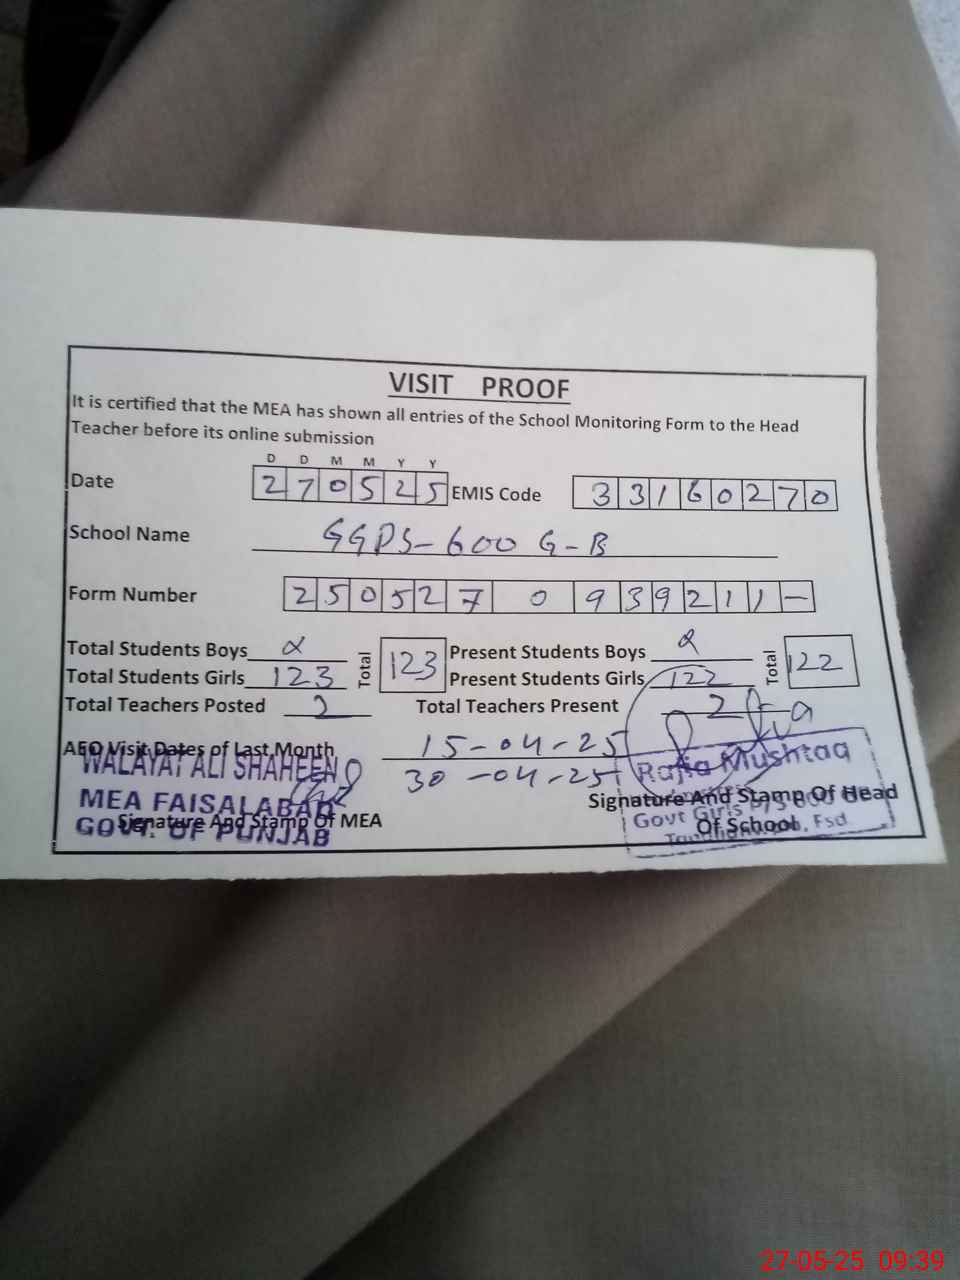 VISIT PROOF
It is certified that the MEA has shown all entries of the School Monitoring Form to the Head
Teacher before its online submission
D D M M Y Y
Date 270525 EMIS Code 33160270
School Name GGPS-600 G-B
Form Number 250527 0 939211-
Total Students Boys Total 123 Present Students Boys Total 122
Total Students Girls 123 Present Students Girls 122
Total Teachers Posted 2 Total Teachers Present 2
AEO Visit Dates of Last Month 15-04-25
30-04-25
WALAYAT ALI SHAHEEN
MEA FAISALABAD
GOVT. OF PUNJAB
Signature And Stamp Of MEA
Rafia Mushtaq
Signature And Stamp Of Head
Of School
Govt Girls P/S 600 GB
Fsd
27-05-25 09:39